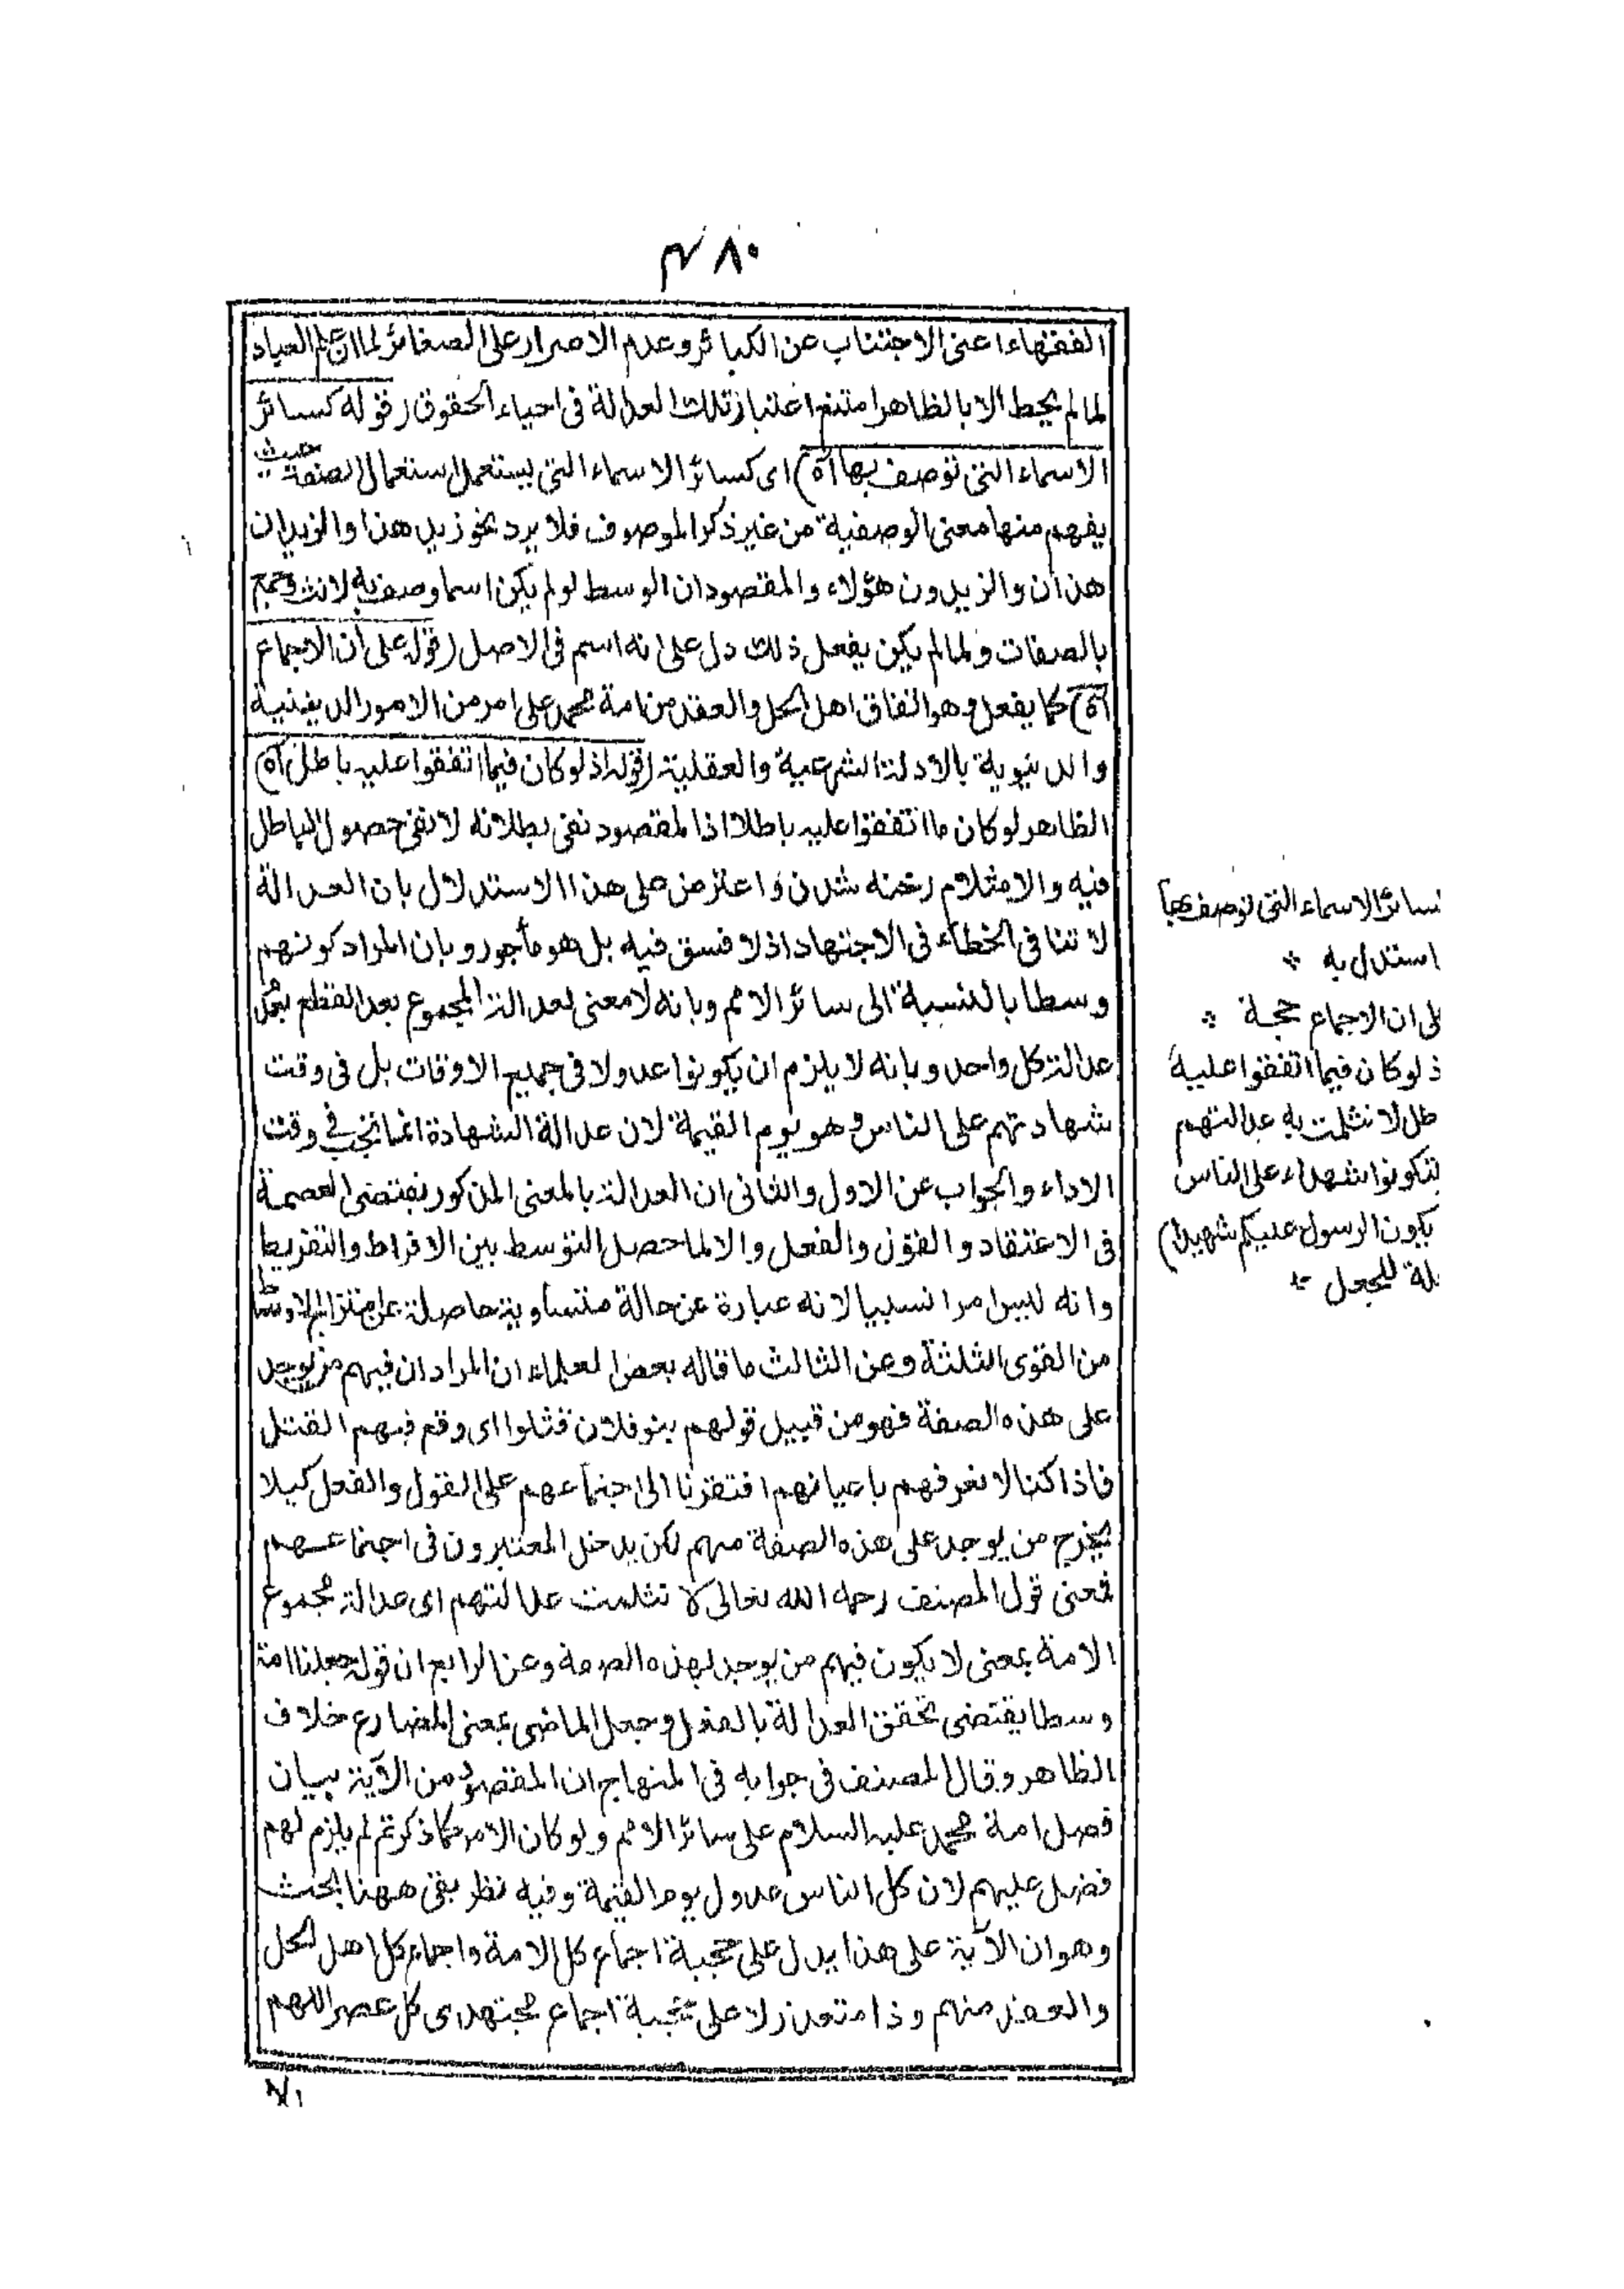 ۴۸۰
الفقهاء اعنى الاجتناب عن الكبائر وعدم الاصرار على الصغائر لما ان علم العباد
لما لم يحط الا بالظاهر امتنع اعتبار تلك العدالة فى احياء الحقوق (قوله كسائر
الاسماء التى توصف بها آه) اى كسائر الاسماء التى يستعمل استعمال الصفة حيث
يفهم منها معنى الوصفية من غير ذكر الموصوف فلا يرد نحو زيد هذا والزيدان
هذان والزيدون هؤلاء والمقصود ان الوسط لو لم يكن اسما وصف به لانث وجمع
بالصفات ولما لم يكن يفعل ذلك دل على انه اسم فى الاصل (قوله على ان الاجماع
آه) كما يفعل وهو اتفاق اهل الحل والعقد من امة محمد على امر من الامور الدينية
والدنيوية بالادلة الشرعية والعقلية (قوله اذ لو كان فيما اتفقوا عليه باطل آه)
الظاهر لو كان ما اتفقوا عليه باطلا اذ المقصود نفى بطلانه لا نفى حصول الباطل
فيه والانثلام رخنه شدن واعترض على هذا الاستدلال بان العدالة
لا تنافى الخطأ فى الاجتهاد اذ لا فسق فيه بل هو مأجور وبان المراد كونهم
وسطا بالنسبة الى سائر الامم وبانه لا معنى لعدالة المجموع بعد القطع بعدم
عدالة كل واحد وبانه لا يلزم ان يكونوا عدولا فى جميع الاوقات بل فى وقت
شهادتهم على الناس وهو يوم القيمة لان عدالة الشهادة انما تجب فى وقت
الاداء والجواب عن الاول والثانى ان العدالة بالمعنى المذكور يقتضى العصمة
فى الاعتقاد والقول والفعل والا لما حصل التوسط بين الافراط والتفريط
وانه ليس امرا نسبيا لانه عبارة عن حالة متشابهة حاصلة عن امتزاج الاوساط
من القوى الثلثة وعن الثالث ما قاله بعض العلماء ان المراد ان فيهم من يوجد
على هذه الصفة فهو من قبيل قولهم بنو فلان قتلوا اى وقع فيهم القتل
فاذا كنا لا نعرفهم باعيانهم افتقرنا الى اجتماعهم على القول والفعل كيلا
يخرج من يوجد على هذه الصفة منهم لكن يدخل المعتبرون فى اجتماعهم
فمعنى قول المصنف رحمه الله تعالى لا نثلمت عدالتهم اى عدالة مجموع
الامة بمعنى لا يكون فيهم من يوجد بهذه الصفة وعن الرابع ان قوله جعلنا امة
وسطا يقتضى تحقق العدالة بالفعل وجعل الماضى بمعنى المضارع خلاف
الظاهر وقال المصنف فى جوابه فى المنهاج ان المقصود من الآية بيان
فضل امة محمد عليه السلام على سائر الامم ولو كان الامر كما ذكرتم لم يلزم لهم
فضل عليهم لان كل الناس عدول يوم القيمة وفيه نظر بقى ههنا بحث
وهو ان الآية على هذا يدل على حجية اجماع كل الامة واجماع كل اهل الحل
والعقد منهم وذا متعذر لا على حجية اجماع مجتهدى كل عصر اللهم
۴۸۱
سائر الاسماء التى توصف بها
استدل به
لى ان الاجماع حجة
ذ لو كان فيما اتفقوا عليه
طل لا نثلمت به عدالتهم
لتكونوا شهداء على الناس
يكون الرسول عليكم شهيدا)
لة للجعل